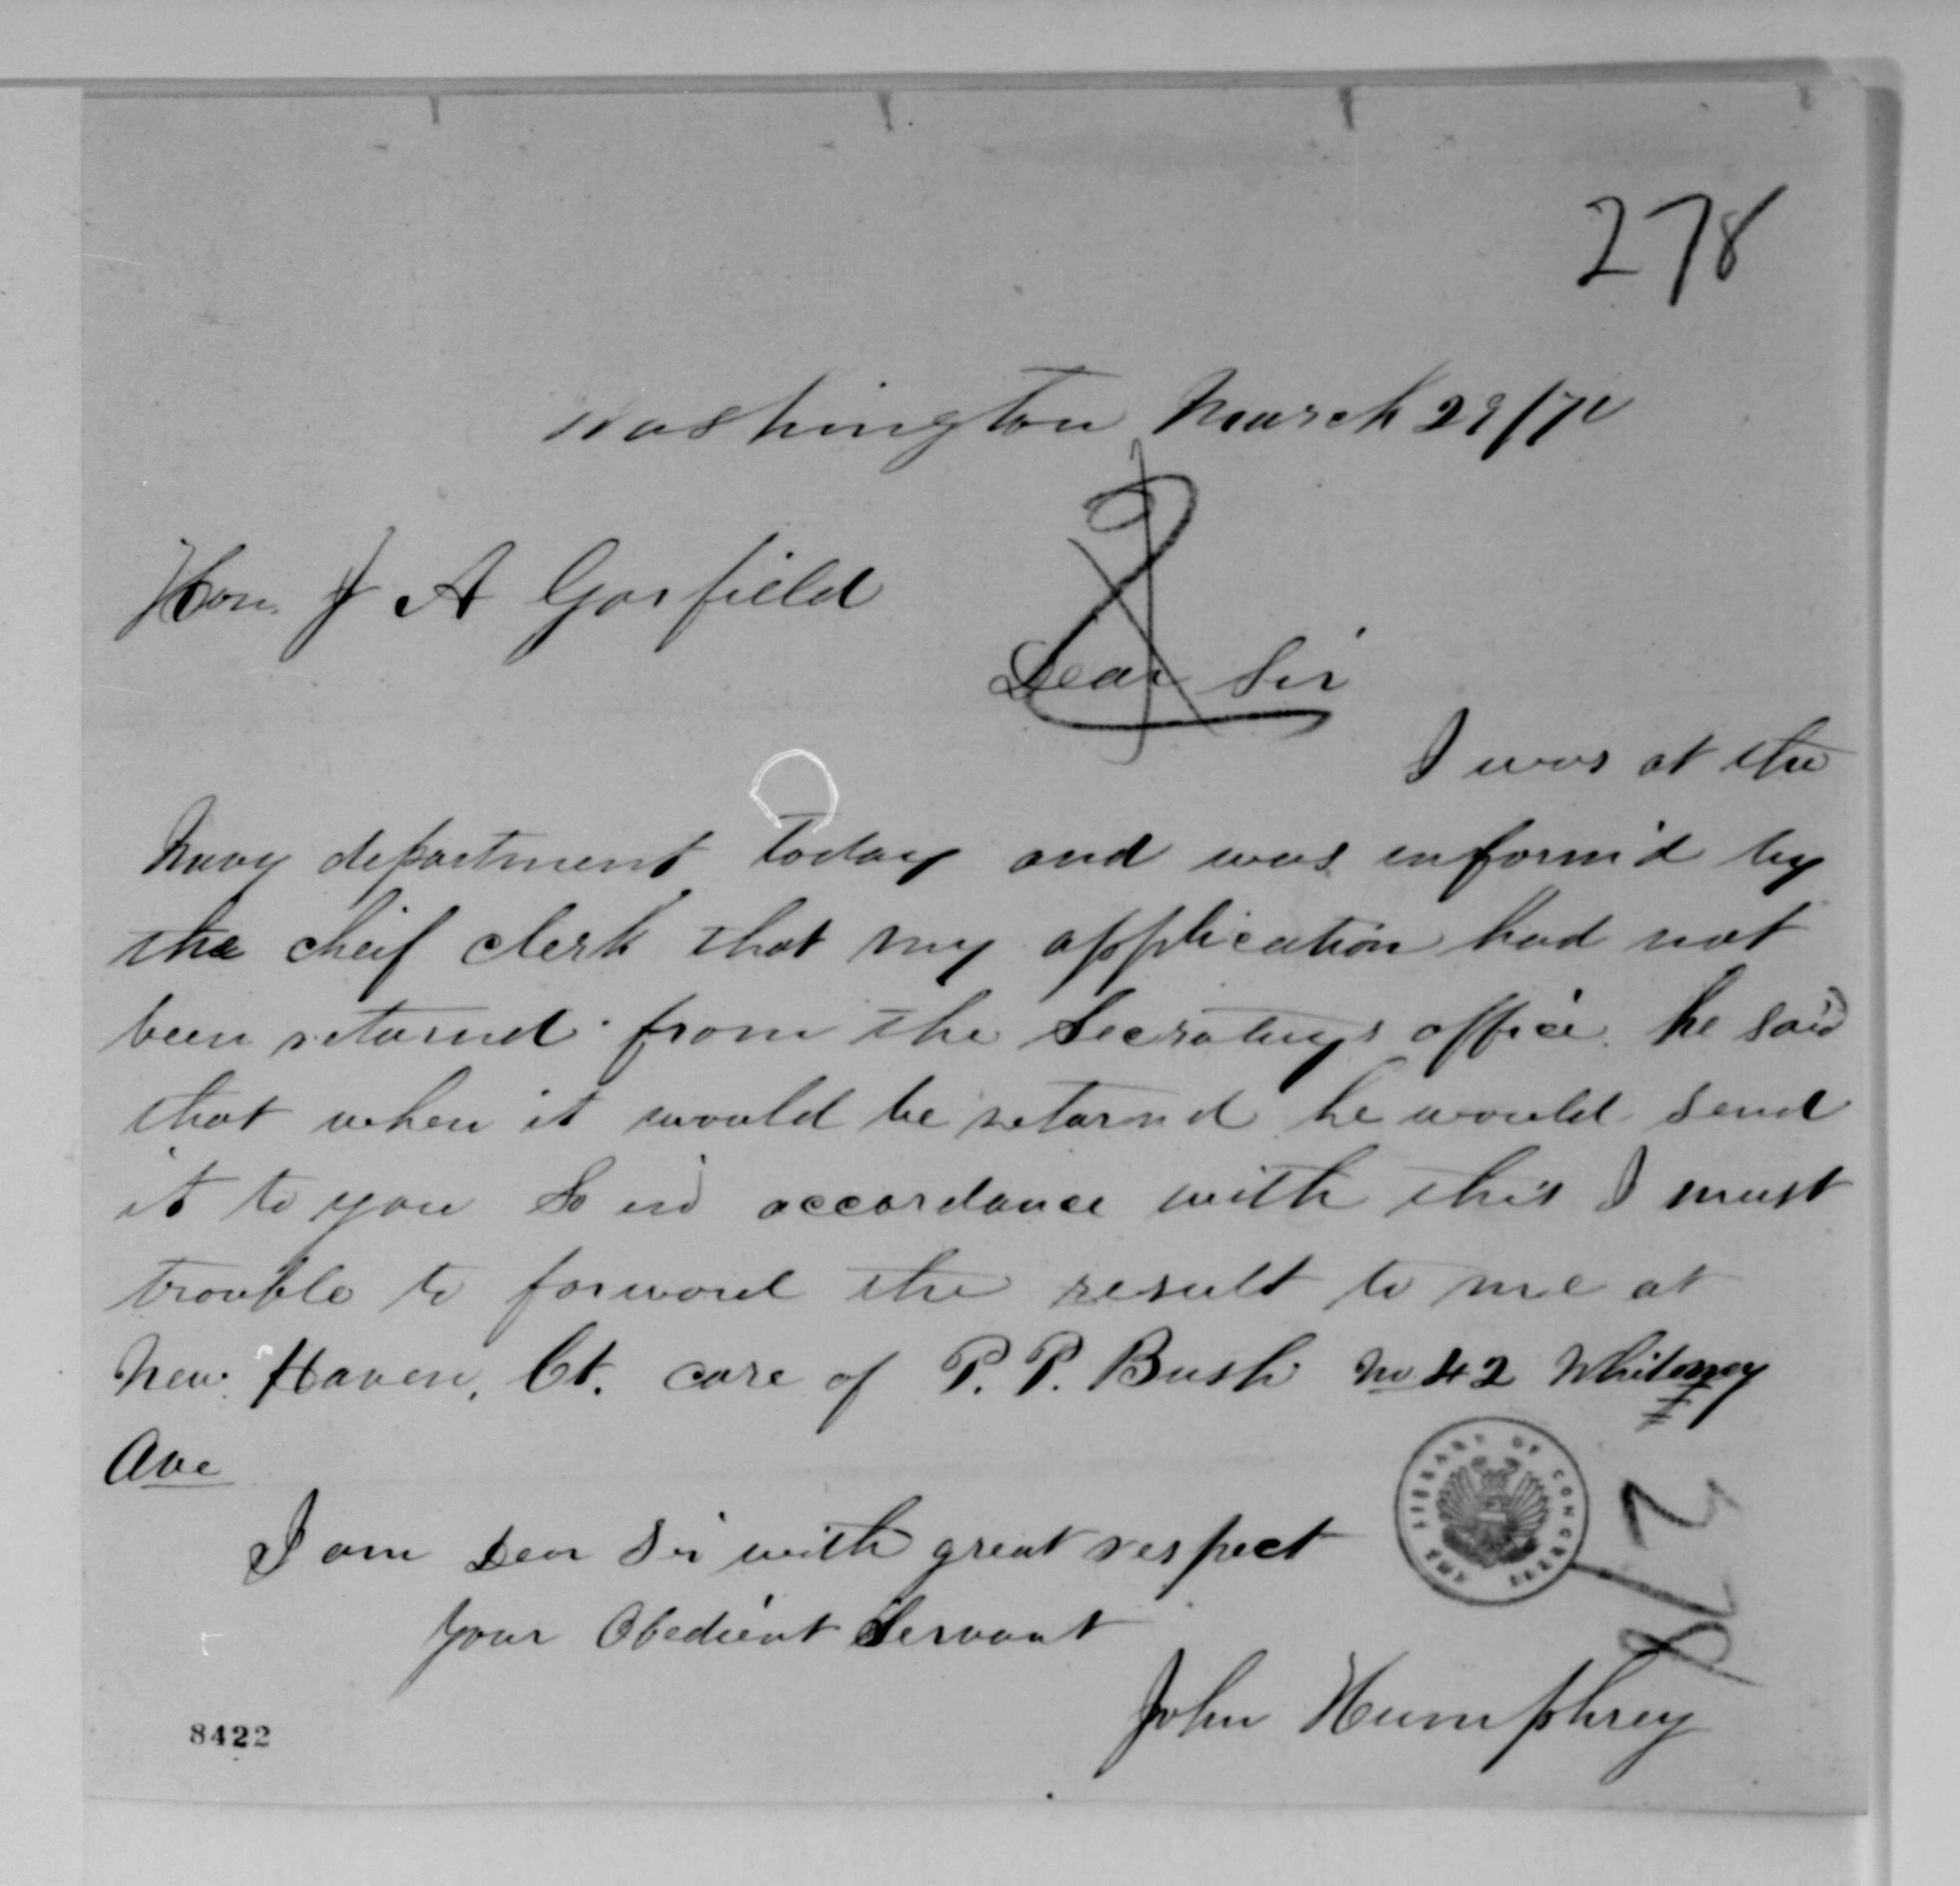 278
Washington March 29/70
Hon. J A Garfield
Dear Sir
I was at the
Navy department today and was inform'd by
the cheif clerk that my application had not
been returnd from the Secratuys office. he said
that when it would be returnd he would send
it to you So in accordance with this I must
trouble to forward the result to me at
New Haven, Ct. care of P. P. Bush No 42 Whitney
Ave
I am Dear Sir with great respect
Your Obedient Servant
John Humphrey
THE LIBRARY OF CONGRESS
278
8422